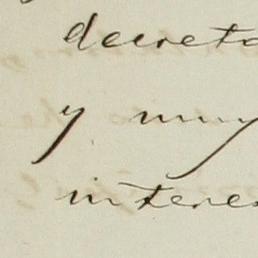 decreto
y muy
interes